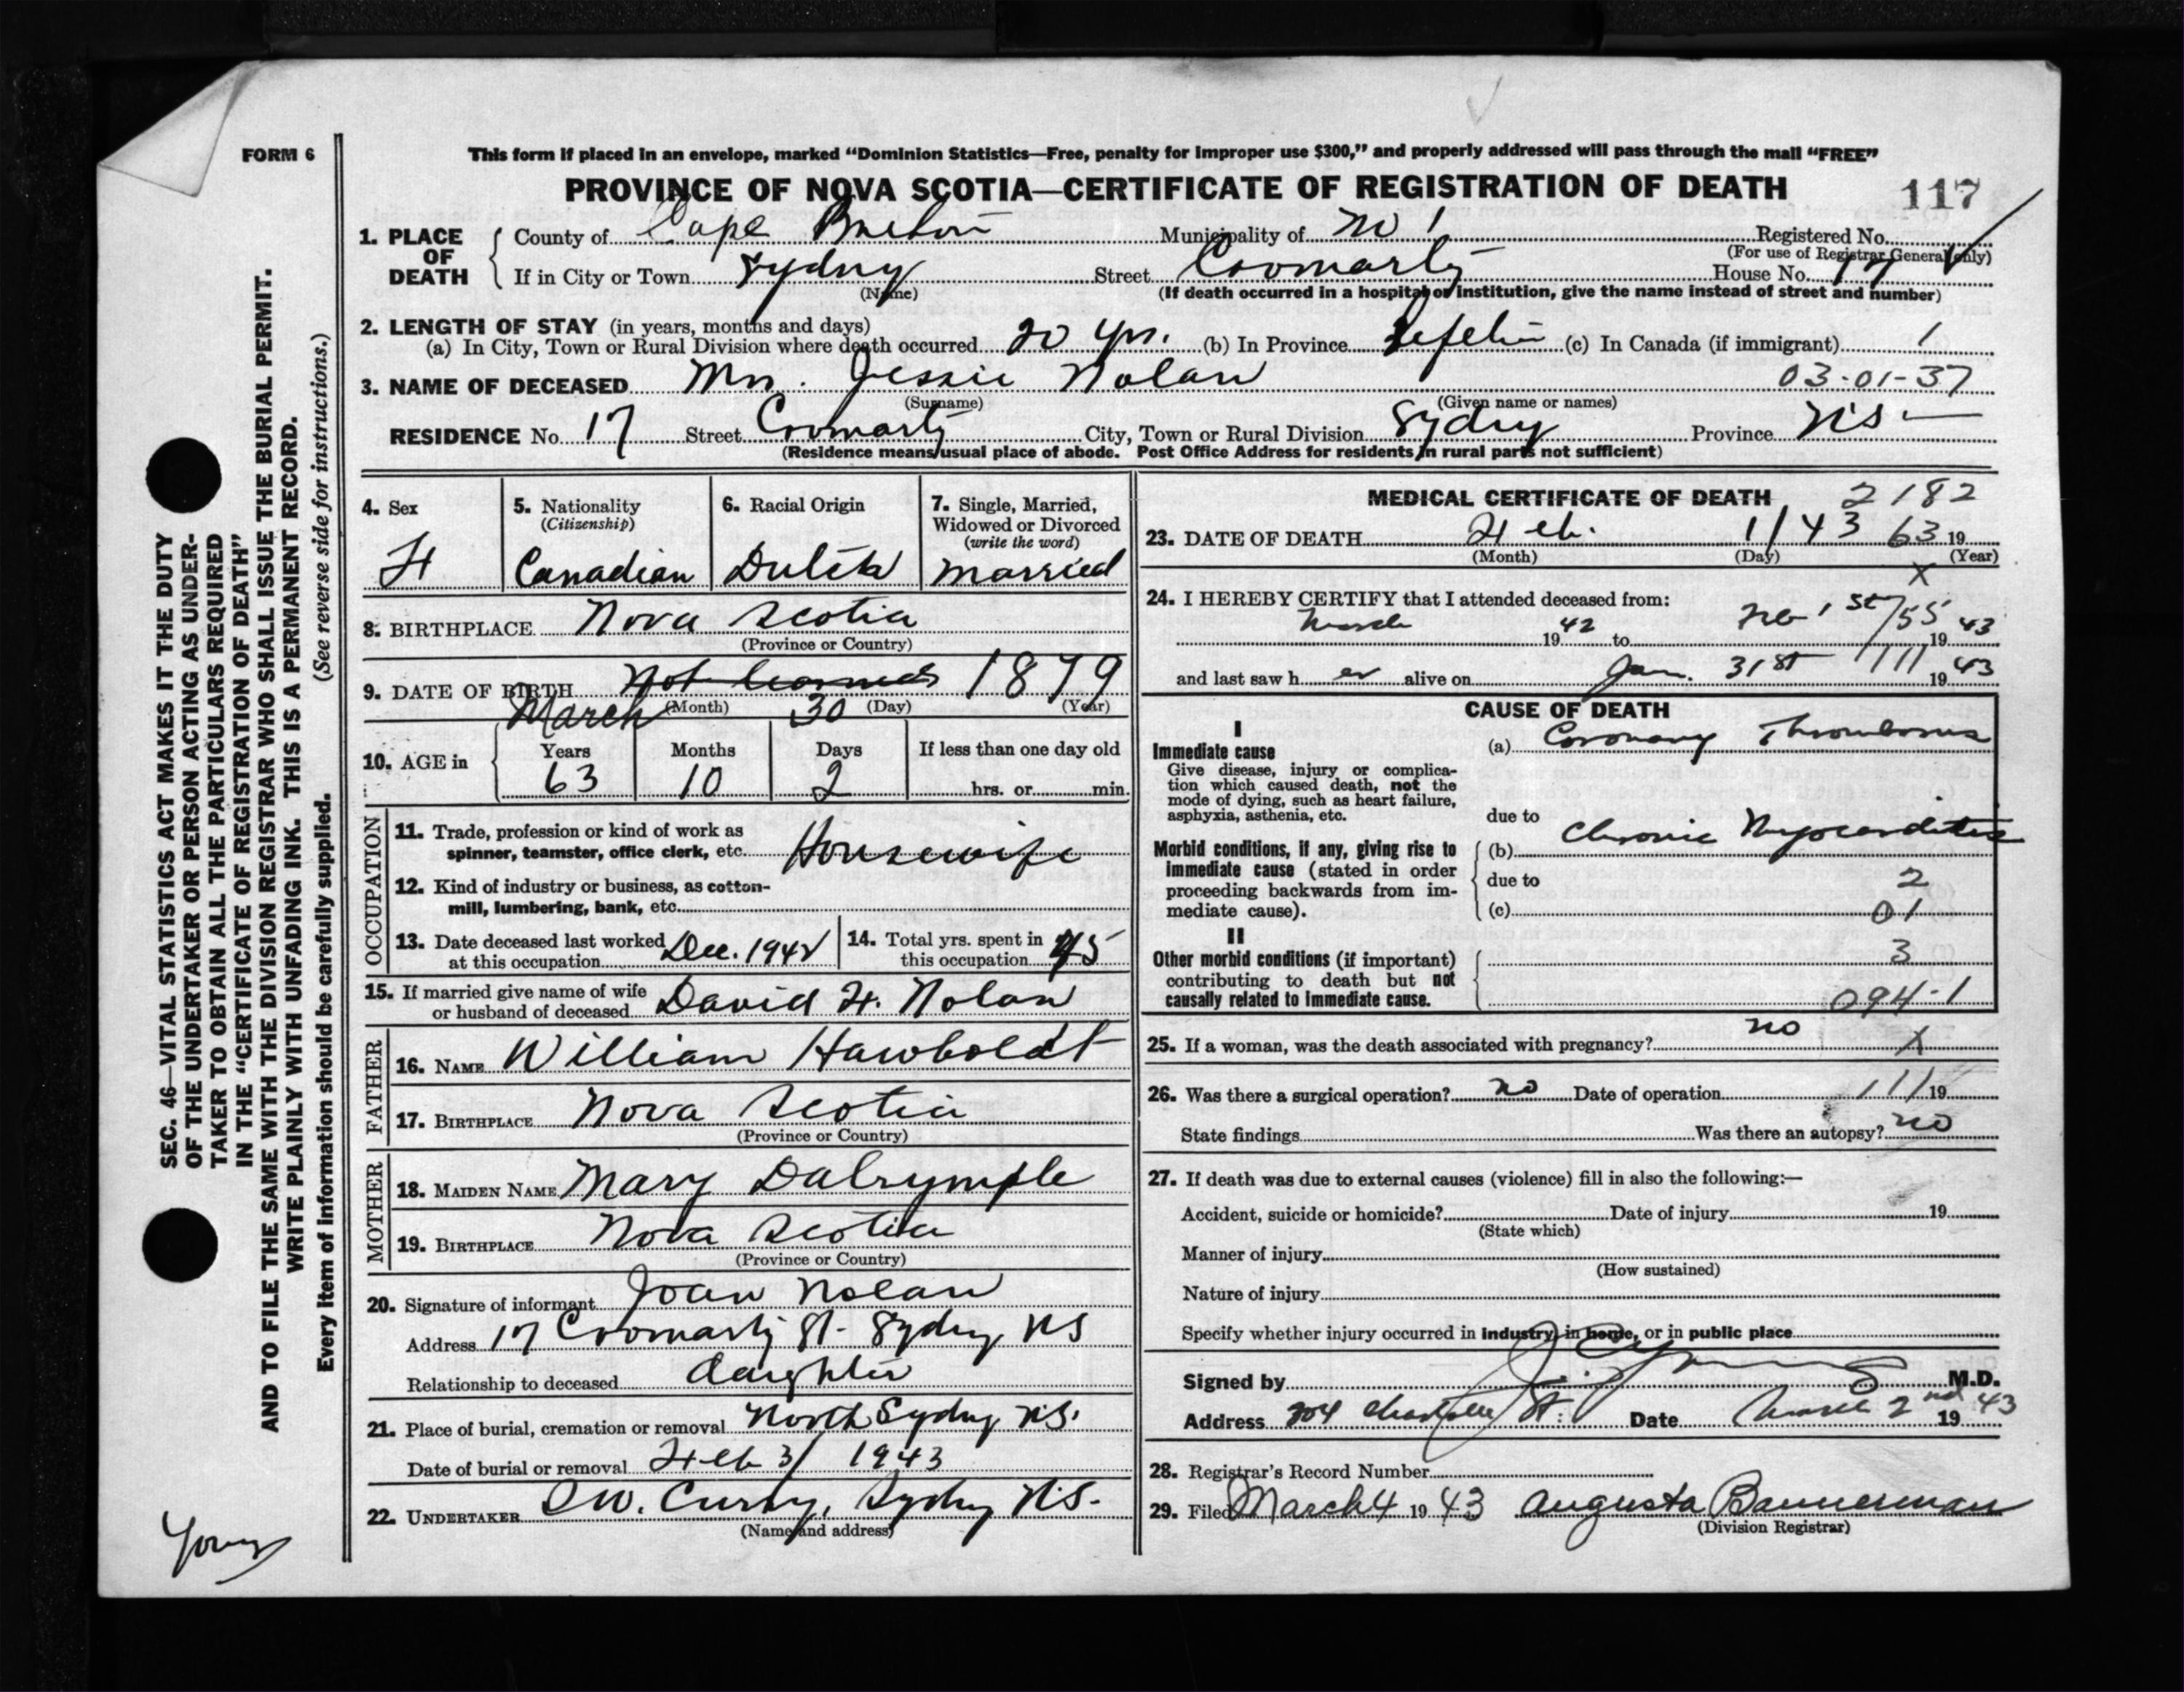 FORM 6
This form if placed in an envelope, marked “Dominion Statistics—Free, penalty for improper use $300,” and properly addressed will pass through the mail “FREE”
PROVINCE OF NOVA SCOTIA—CERTIFICATE OF REGISTRATION OF DEATH 117
1. PLACE OF DEATH
County of Cape Breton Municipality of No 1 Registered No.
(For use of Registrar General only)
If in City or Town Sydney Street Cromarty House No. 17
(Name) (If death occurred in a hospital or institution, give the name instead of street and number)
2. LENGTH OF STAY (in years, months and days)
(a) In City, Town or Rural Division where death occurred 20 yrs. (b) In Province Lifetime (c) In Canada (if immigrant) 1
3. NAME OF DECEASED Mrs. Jessie Nolan 03-01-37
(Surname) (Given name or names)
RESIDENCE No. 17 Street Cromarty City, Town or Rural Division Sydney Province N.S.
(Residence means usual place of abode. Post Office Address for residents in rural parts not sufficient)
4. Sex
F
5. Nationality
(Citizenship)
Canadian
6. Racial Origin
Dutch
7. Single, Married,
Widowed or Divorced
(write the word)
Married
8. BIRTHPLACE Nova Scotia
(Province or Country)
9. DATE OF BIRTH Not learned 1879
March (Month) 30 (Day) (Year)
10. AGE in
Years Months Days If less than one day old
63 10 2 hrs. or min.
OCCUPATION
11. Trade, profession or kind of work as
spinner, teamster, office clerk, etc. Housewife
12. Kind of industry or business, as cotton-
mill, lumbering, bank, etc.
13. Date deceased last worked
at this occupation Dec. 1942
14. Total yrs. spent in
this occupation 45
15. If married give name of wife
or husband of deceased David H. Nolan
FATHER
16. NAME William Hawboldt
17. BIRTHPLACE Nova Scotia
(Province or Country)
MOTHER
18. MAIDEN NAME Mary Dalrymple
19. BIRTHPLACE Nova Scotia
(Province or Country)
20. Signature of informant Joan Nolan
Address 17 Cromarty St. Sydney NS
Relationship to deceased daughter
21. Place of burial, cremation or removal North Sydney N.S.
Date of burial or removal Feb 3/ 1943
22. UNDERTAKER Curry, Sydney N.S.
(Name and address)
MEDICAL CERTIFICATE OF DEATH 2182
23. DATE OF DEATH Feb. 1/43 63 19
(Month) (Day) (Year)
X
24. I HEREBY CERTIFY that I attended deceased from:
March 1942 to Feb 1st /55 1943
and last saw h er alive on Jan. 31st 111 1943
CAUSE OF DEATH
I
Immediate cause
Give disease, injury or complica-
tion which caused death, not the
mode of dying, such as heart failure,
asphyxia, asthenia, etc.
(a) Coronary Thrombosis
due to
Morbid conditions, if any, giving rise to
immediate cause (stated in order
proceeding backwards from im-
mediate cause).
(b) Chronic Myocarditis
due to 2
(c) 01
II
Other morbid conditions (if important)
contributing to death but not
causally related to immediate cause.
3
094-1
25. If a woman, was the death associated with pregnancy? no X
26. Was there a surgical operation? no Date of operation 111 19
State findings Was there an autopsy? no
27. If death was due to external causes (violence) fill in also the following:—
Accident, suicide or homicide? Date of injury 19
(State which)
Manner of injury
(How sustained)
Nature of injury
Specify whether injury occurred in industry, in home, or in public place
Signed by M.D.
Address 204 Charlotte St. Date March 2nd 1943
28. Registrar's Record Number
29. Filed March 4 1943 Augusta Bannerman
(Division Registrar)
SEC. 46—VITAL STATISTICS ACT MAKES IT THE DUTY
OF THE UNDERTAKER OR PERSON ACTING AS UNDER-
TAKER TO OBTAIN ALL THE PARTICULARS REQUIRED
IN THE “CERTIFICATE OF REGISTRATION OF DEATH”
AND TO FILE THE SAME WITH THE DIVISION REGISTRAR WHO SHALL ISSUE THE BURIAL PERMIT.
WRITE PLAINLY WITH UNFADING INK. THIS IS A PERMANENT RECORD.
Every item of information should be carefully supplied. (See reverse side for instructions.)